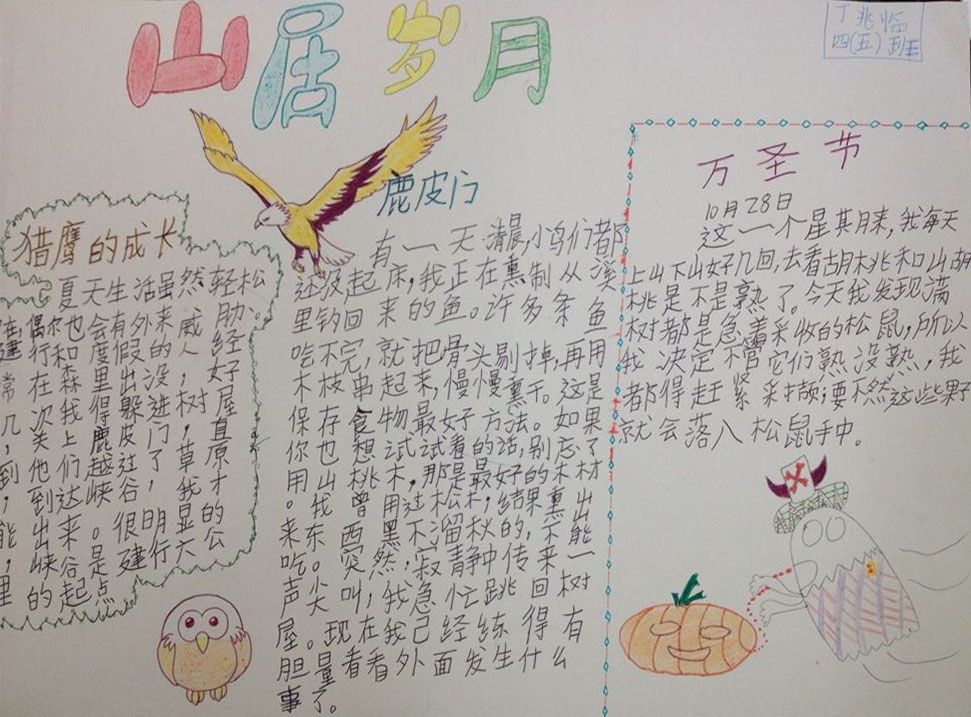 山居岁月
丁兆临
四(五)班
猎鹰的成长
夏天生活虽然轻松
偶尔也会有外来威肋。
建行和度假的人,经
常在森里出没,好
几次我得躲进树屋
,关上鹿皮门,直
到他们越过了草原
,到达峡谷,我才
能出来。很明显的
,峡谷是建行大公
里的起点
鹿皮门
有一天清晨,小鸟们都
还没起床,我正在熏制从溪
里钓回来的鱼。许多条鱼
吃不完,就把骨头剔掉,再用
木枝串起来,慢慢熏干。这是
保存食物最好方法。如果
你也想试试看的话,别忘了
用山桃木,那是最好的木材
。我曾用过松木,结果熏出
来东西黑不溜秋的,不能
吃。突然,寂静中传来一
声尖叫,我急忙跳回树
屋。现在我己经练得有
胆量看看外面发生什么
事了。
万圣节
10月28日
这一个星其月来,我每天
上山下山好几回,去看胡桃和山胡
桃是不是熟了。今天我发现满
树都是急着采收的松鼠,所以
我决定不管它们熟没熟,我
都得赶紧采撷;要不然这些果子
就会落入松鼠手中。